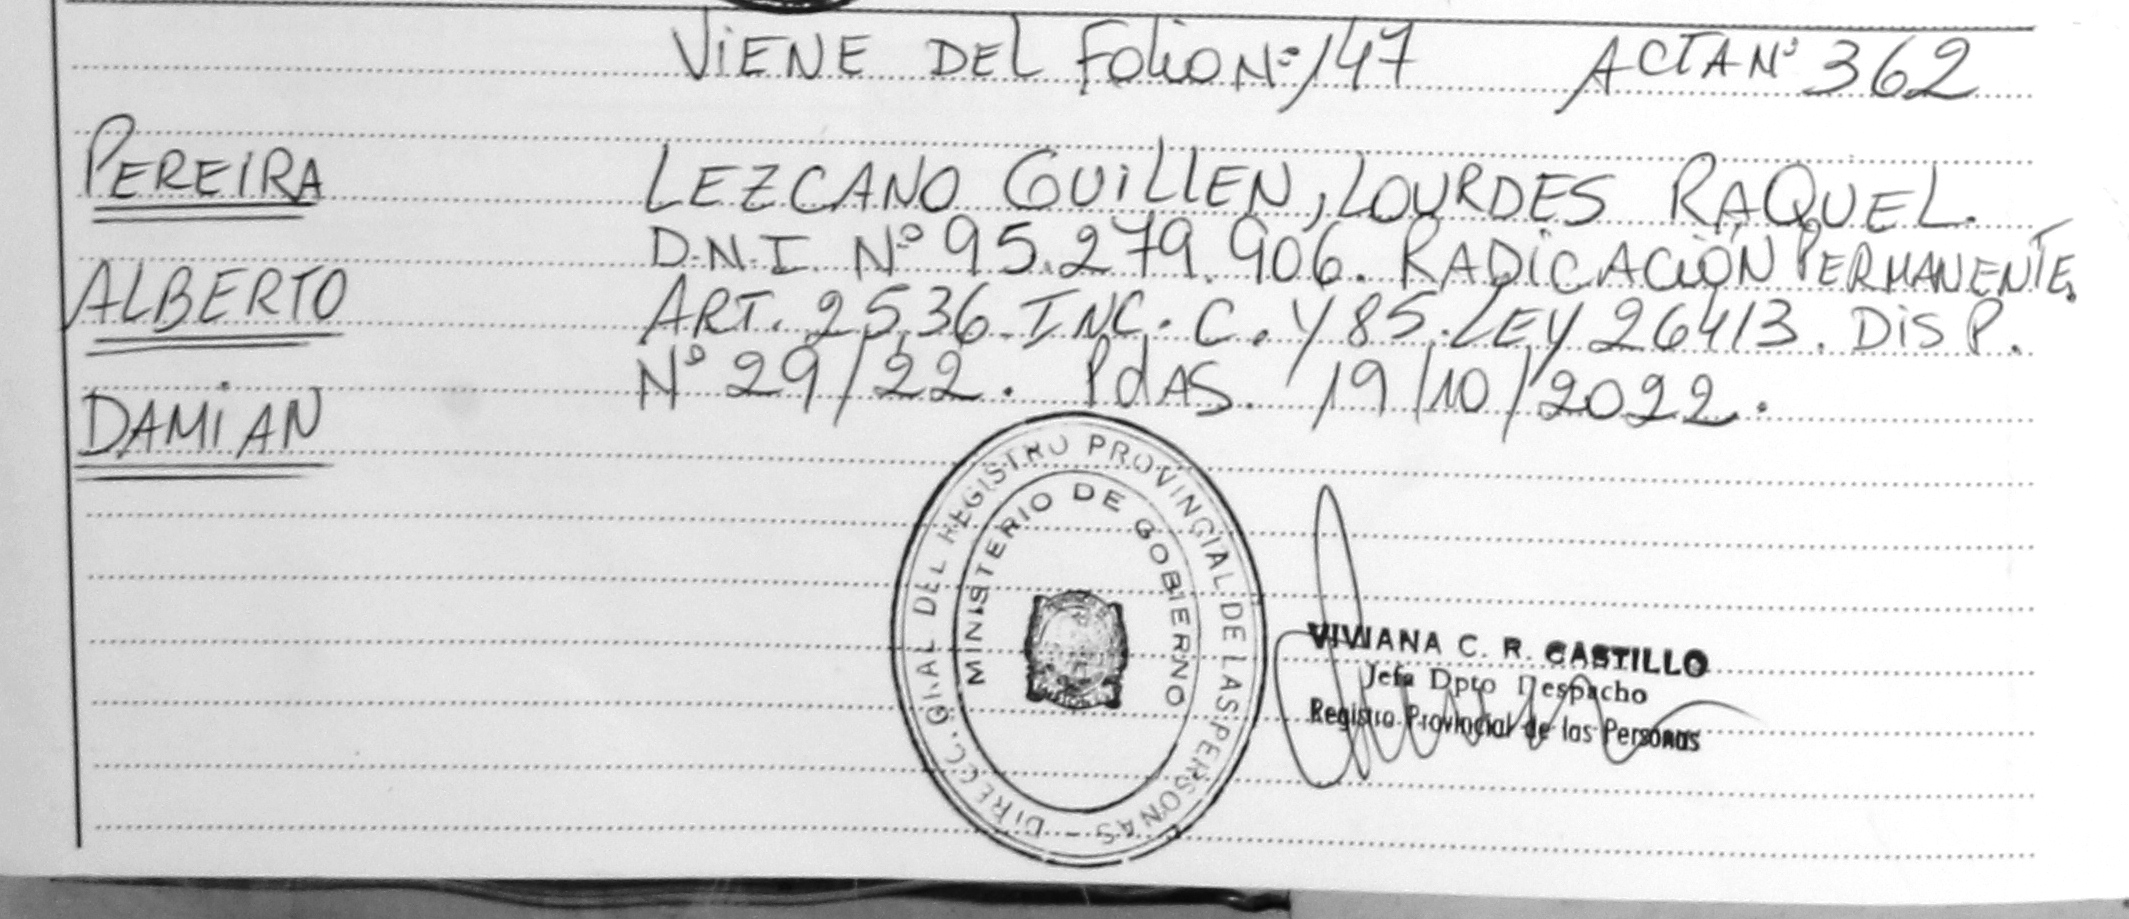 VIENE DEL FOLIO Nº 147 ACTA Nº 362
PEREIRA
ALBERTO
DAMIAN
LEZCANO GUILLEN, LOURDES RAQUEL.
D.N.I. Nº 95.279.906. RADICACIÓN PERMANENTE.
ART. 2536. INC. C. Y 85. LEY 26413. DISP.
Nº 29/22. PdAS. 19/10/2022.
DIRECC. GRAL DEL REGISTRO PROVINCIAL DE LAS PERSONAS -
MINISTERIO DE GOBIERNO
VIVIANA C. R. CASTILLO
Jefa Dpto Despacho
Registro Provincial de las Personas